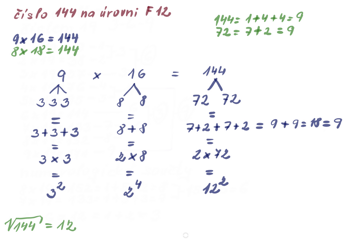 číslo 144 na úrovni F12
144 = 1+4+4 = 9
72 = 7+2 = 9
9x16 = 144
8x18 = 144
9 x 16 = 144
3 3 3 8 8 72 72
= = =
3+3+3 8+8 7+2+7+2 = 9+9 = 18 = 9
= = =
3x3 2x8 2x72
= = =
3² 2⁴ 12²
√144 = 12